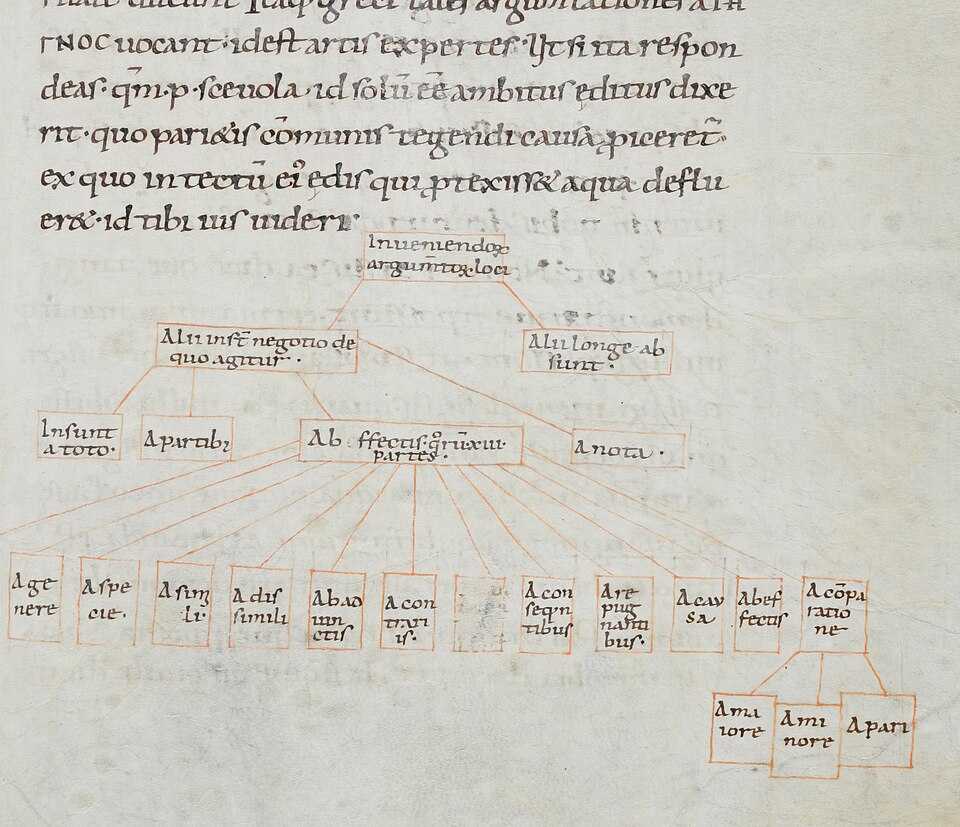 ΓΝΟC uocant · idest artis expertes · Ut si ita respon
deas · qm̄ · p · sceuola · id solū eē ambitus ęditus dixe
rit · quo pari&is cōmunis tegendi causa piceret̄ ·
ex quo in tectū ei᾽ ędis qui ptexiss& aqua deflu
er& · id tibi uis uideri
Inueniendoꝝ
argum̄toꝝ · loci
Alii insт̄ negotio de
quo agitur ·
Alii longe ab
sunt ·
Insunt
a toto ·
A partibꝫ
Ab ffectis · qrū · xiii ·
partes ·
A nota ·
A ge
nere
A spe
cie ·
A simi
li ·
A dis
simili
Ab ad
iun
ctis
A con
trari
is ·
A con
seqn
tibus
A re
pug
nanti
bus ·
A cau
sa
Ab ef
fectis
A cōpa
ratio
ne
A ma
iore
A mi
nore
A pari